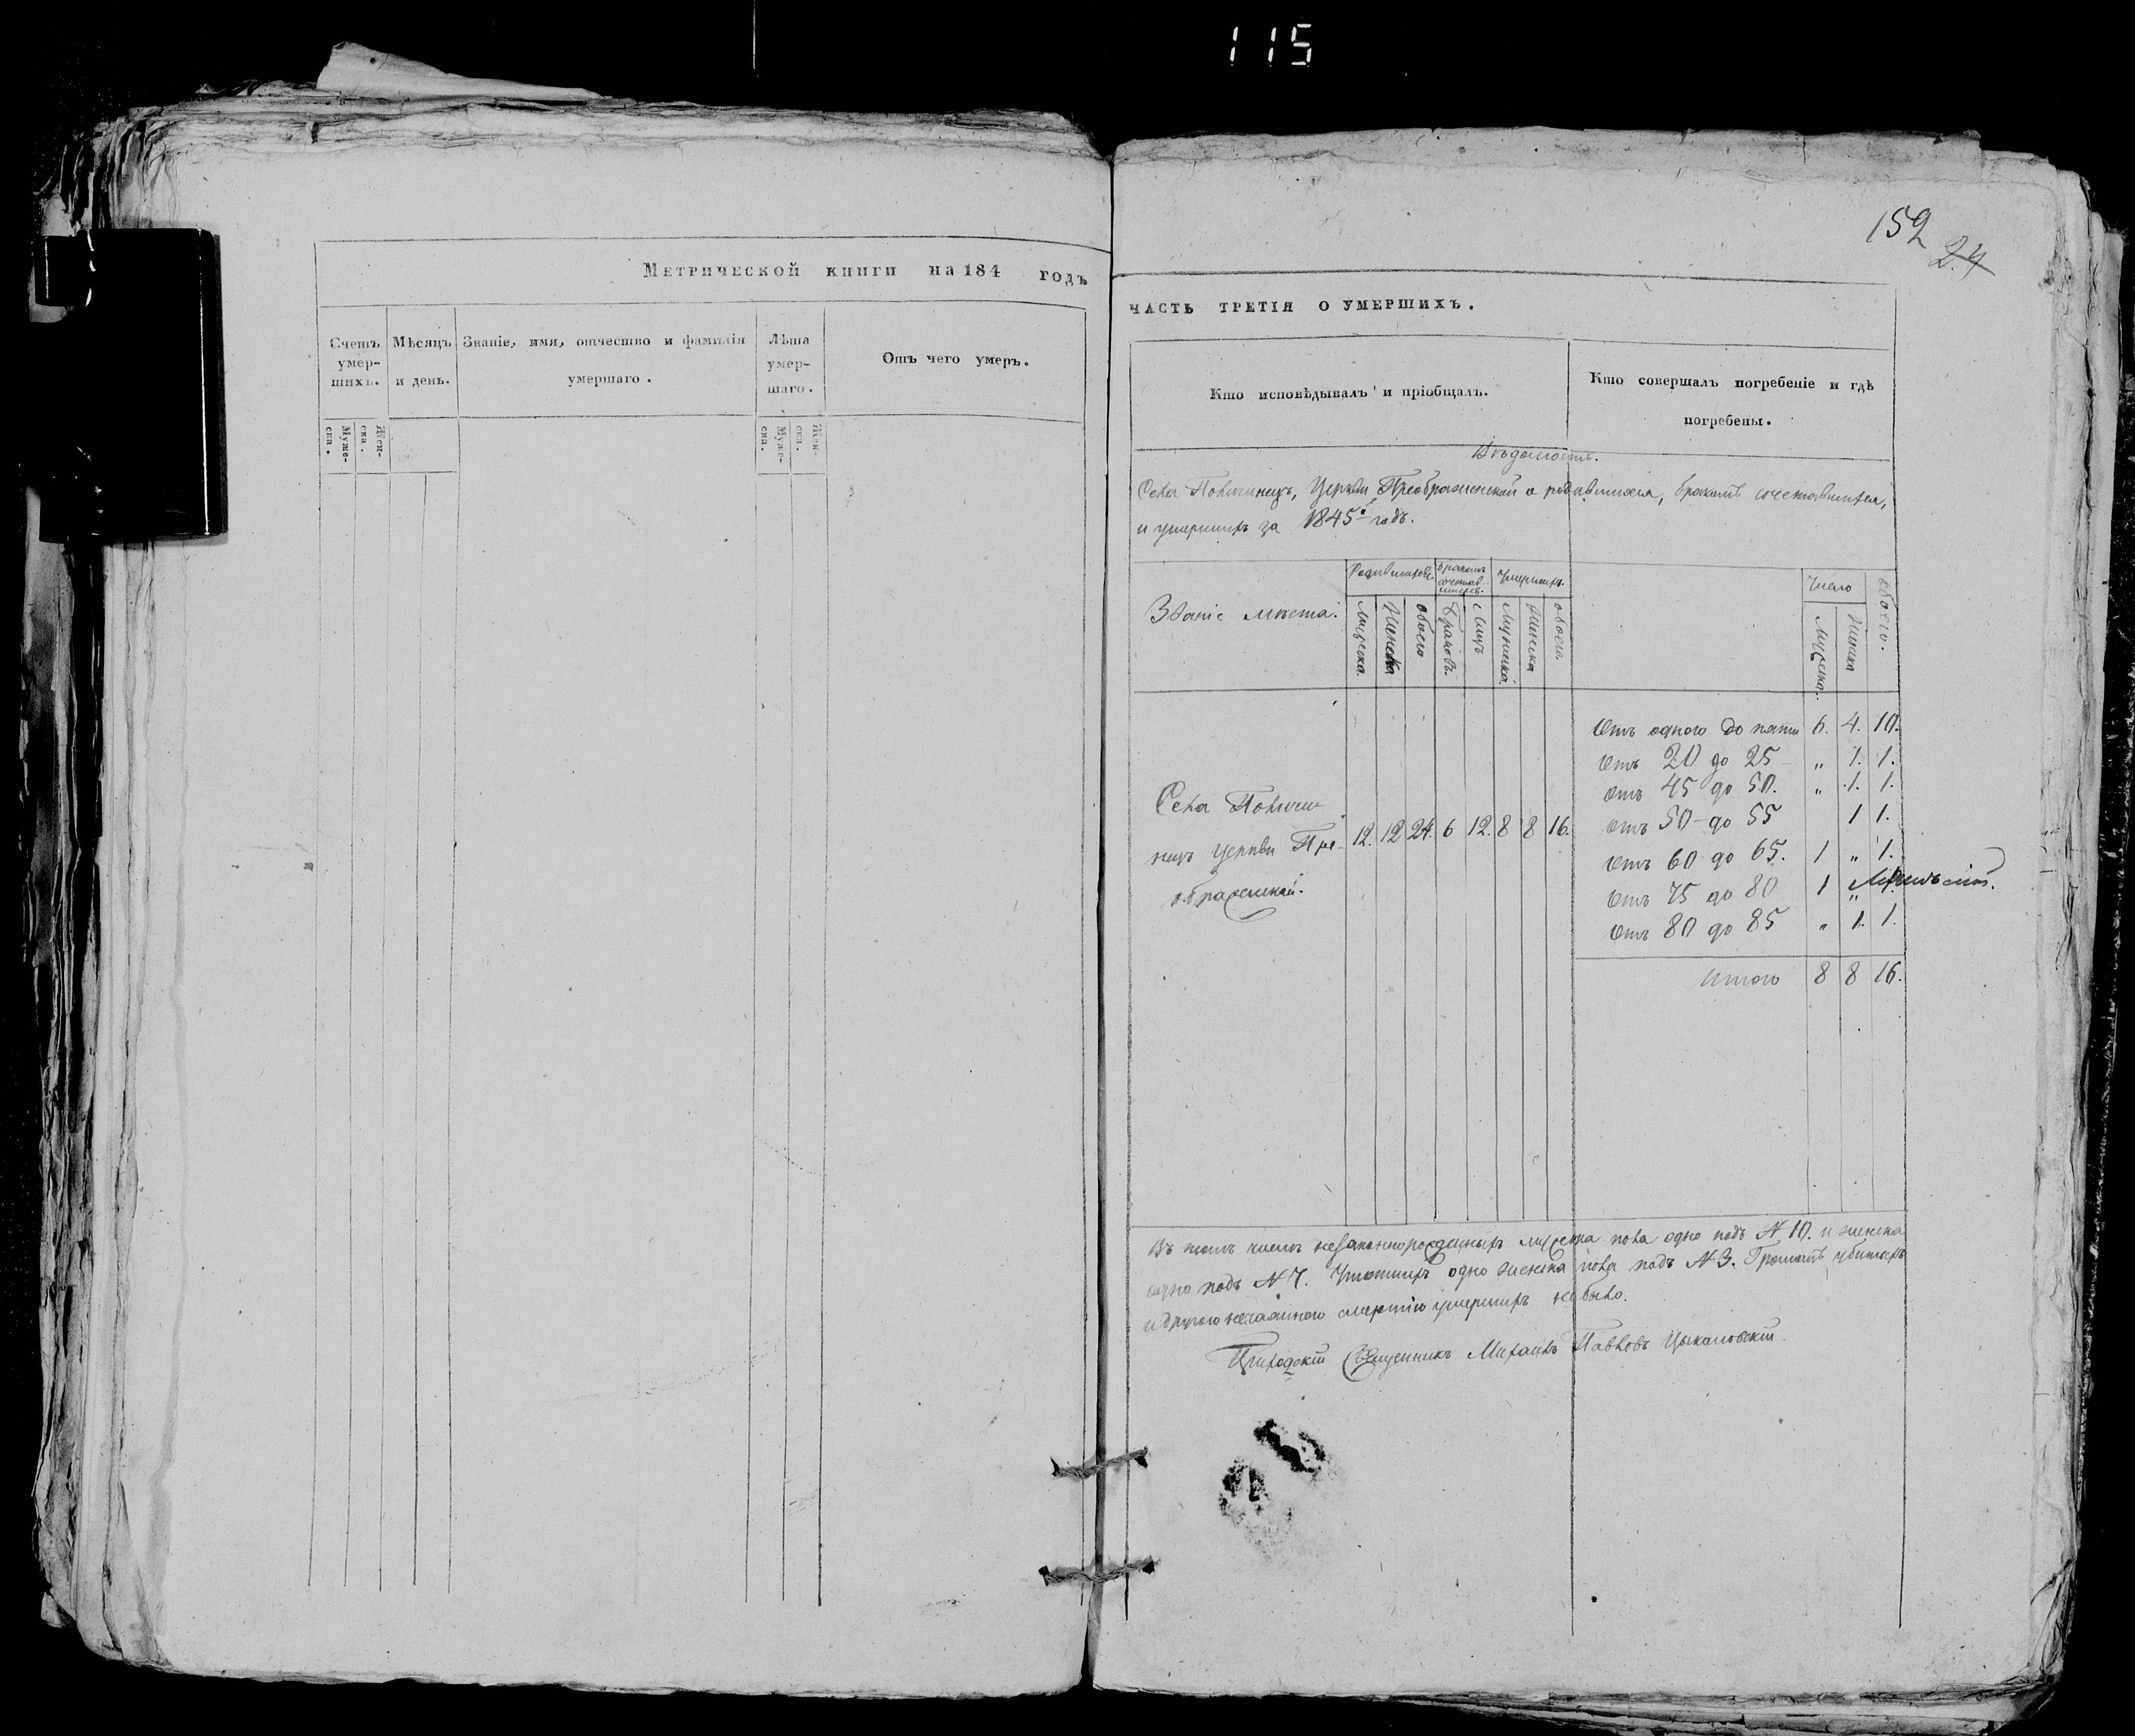 115
159
24
Метрической книги на 184 годъ
Счетъ умер-шихъ.
Муже-ска.
Жен-ска.
Мѣсяцъ и день.
Званіе, имя, отчество и фамилія умершаго.
Лѣта умер-шаго.
Муже-ска.
Жен-ска.
Отъ чего умеръ.
часть третія о умершихъ.
Кто исповѣдывалъ и пріобщалъ.
Кто совершалъ погребеніе и гдѣ погребены.
Вѣдомость.
Села Церкви Преображенской о родившихся, бракомъ сочетавшихся,
и умершихъ за 1845й годъ.
Званіе мѣста.
Родившихся
Мужеска.
Женска
обоего
Бракомъ сочетав-шихся.
Браковъ.
Лицъ
Умершихъ.
Мужеска.
Женска
обоего
Число
Мужеска.
Женска
обоего.
Села
церкви Пре-
ображенской.
12. 12 24. 6 12. 8 8 16.
Отъ одного до пяти 6. 4. 10.
отъ 20 до 25 „ 1. 1.
отъ 45 до 50. „ 1. 1.
отъ 50 до 55 1 1.
отъ 60 до 65. 1 „ 1.
отъ 75 до 80 1 „
отъ 80 до 85 „ 1. 1.
Итого 8 8 16.
Въ томъ числѣ незаконнорожденныхъ мужеска пола одно подъ N 10. и женска
одно подъ N 7. Утопшихъ одно женска пола подъ N 3. Громомъ убитыхъ
и другою нечаянною смертію умершихъ небыло.
Приходскій Священникъ Михаилъ Павловъ